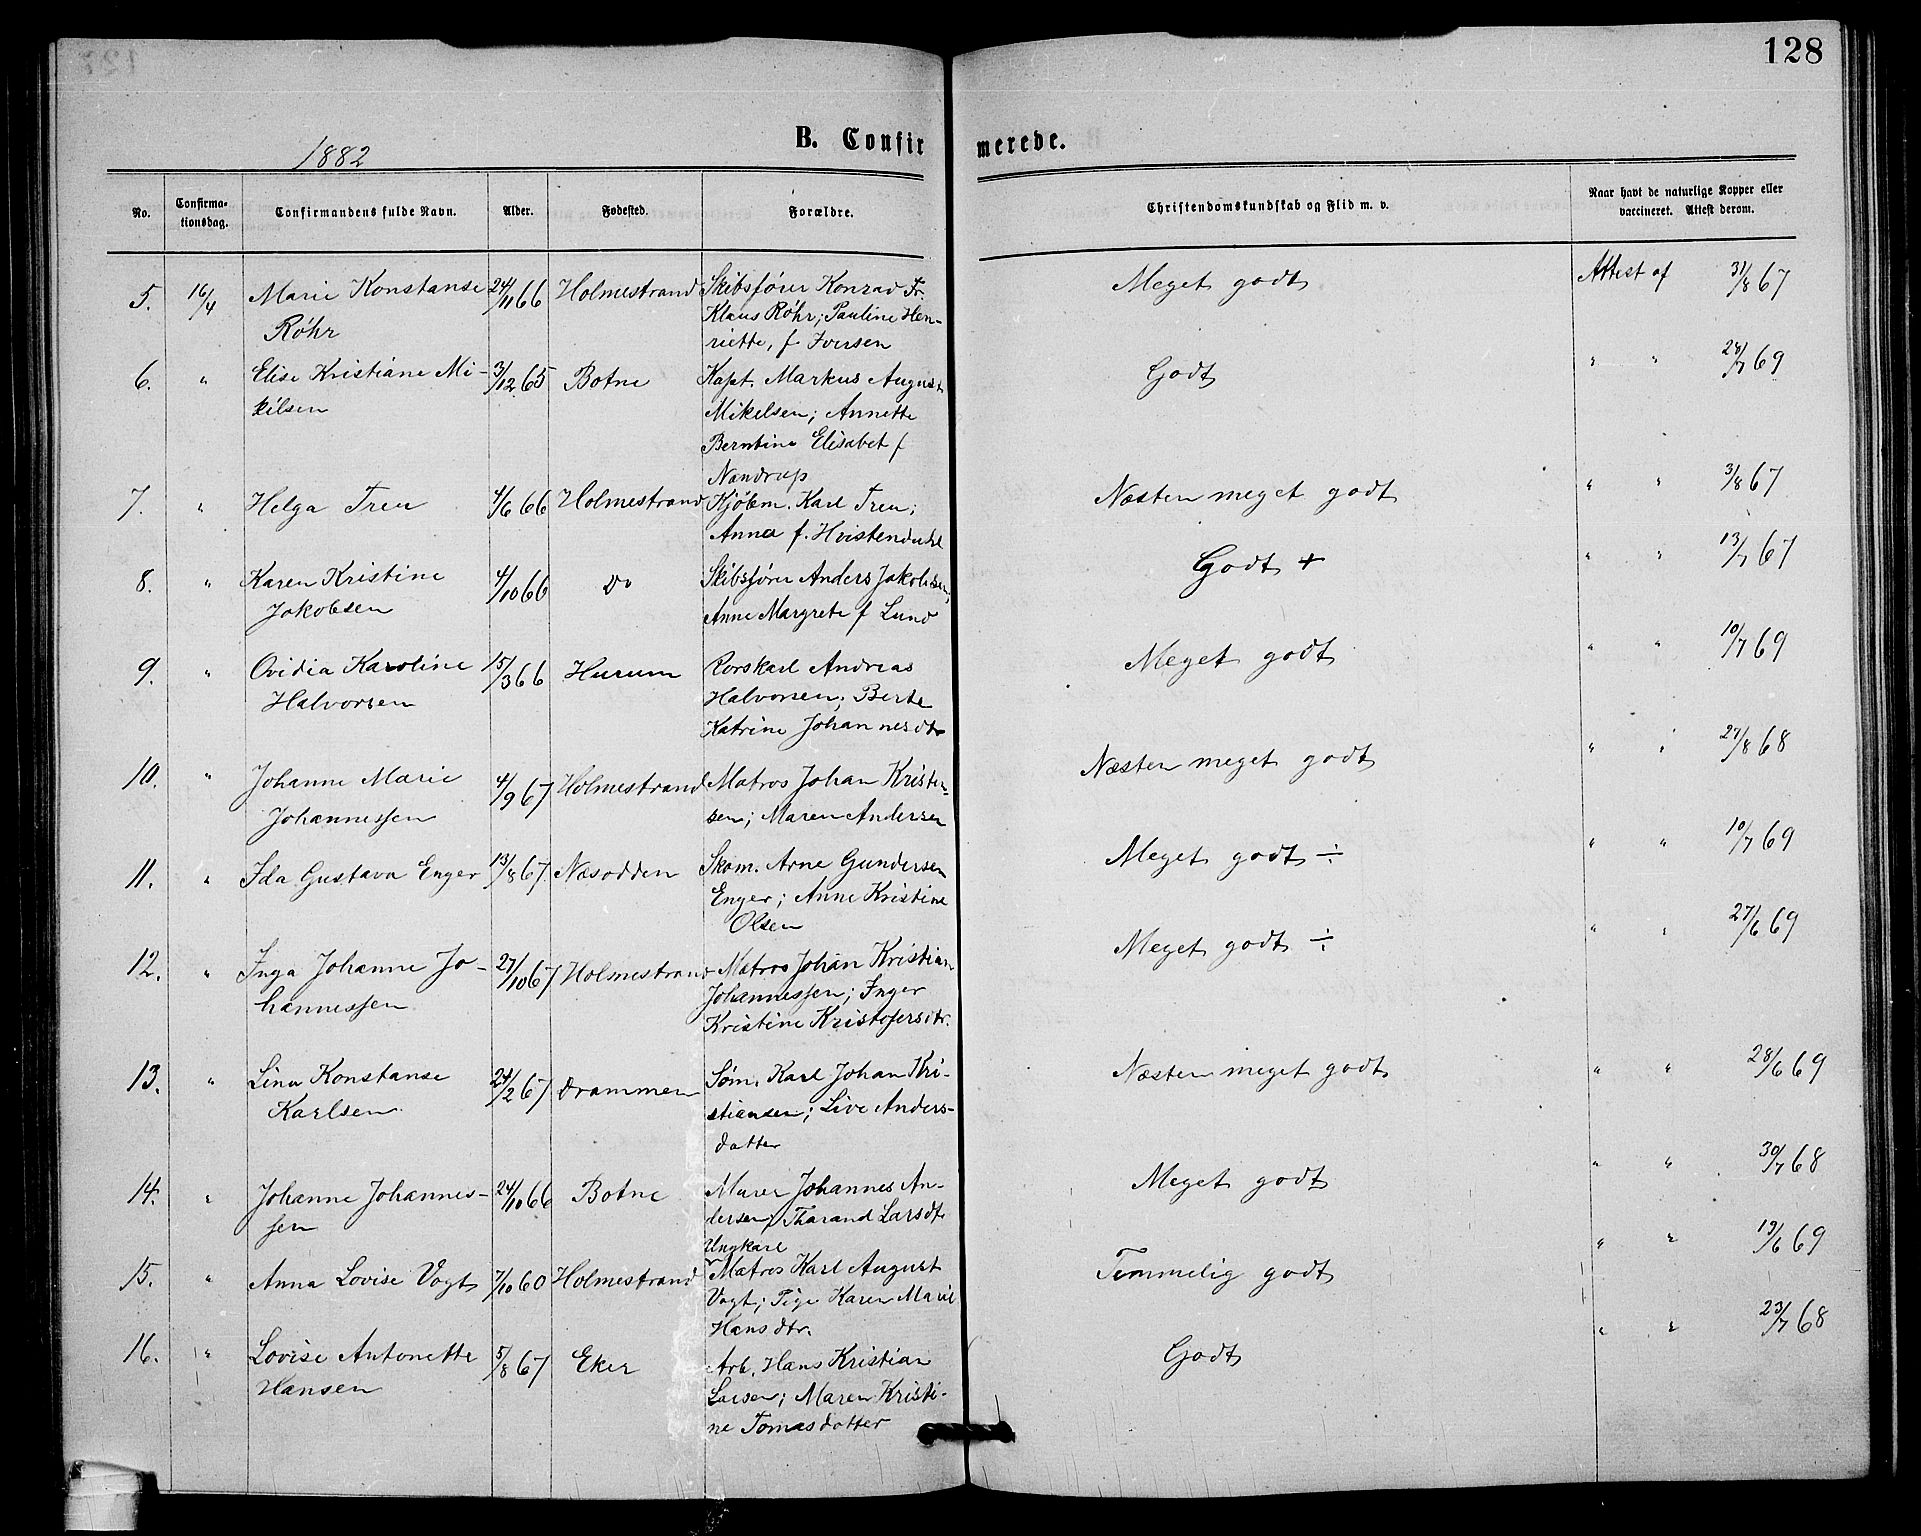 128
1882
B. Confirmerede.
No. Confirmationsdag. Confirmandens fulde Navn. Alder. Fødested. Forældre. Christendomskundskab og Flid m. v. Naar havt de naturlige Kopper eller vaccineret. Attest derom.
5. 16/4 Marie Konstanse 24/11 66 Holmestrand Skibsfører Konrad Fr. Meget godt Attest af 31/8 67
Røhr Klaus Røhr; Pauline Hen-
riette, f Iversen
6. " Elise Kristiane Mi- 3/12 65 Botne Kapt. Markus August Godt " " 28/7 69
kelsen Mikelsen; Annette
Berntine Elisabet f
Nandrup
7. " Helga Treu 4/6 66 Holmestrand Kjøbm. Karl Treu; Næsten meget godt " " 3/8 67
Anna f. Hvistendahl
8. " Karen Kristine 4/10 66 Do Skibsfører Anders Jakobsen, Godt + " " 13/7 67
Jakobsen Anne Margrete f Lund
9. " Ovidia Karoline 15/3 66 Hurum Rorskarl Andreas Meget godt " " 10/7 69
Halvorsen Halvorsen; Berte
Katrine Johannesdtr
10. " Johanne Marie 4/9 67 Holmestrand Matros Johan Kristen- Næsten meget godt " " 27/8 68
Johannessen sen; Maren Andersen
11. " Ida Gustava Enger 13/8 67 Næsodden Skom. Arne Gundersen Meget godt ÷ " " 10/7 69
Enger; Anne Kristine
Olsen
12. " Inga Johanne Jo- 27/10 67 Holmestrand Matros Johan Kristian Meget godt ÷ " " 27/6 69
hannessen Johannessen; Inger
Kristine Kristofersdtr.
13. " Lina Konstanse 24/2 67 Drammen Søm. Karl Johan Kri- Næsten meget godt " " 28/6 69
Karlsen stiansen; Live Anders-
datter
14. " Johanne Johannes- 24/10 66 Botne Murer Johannes An- Meget godt " " 30/7 68
sen dersen; Tharand Larsdt.
Ungkarl
15. " Anna Lovise Vogt 7/10 60 Holmestrand Matros Karl August Temmelig godt " " 19/6 69
Vogt; Pige Karen Marie
Hansdtr.
16. " Lovise Antonette 5/8 67 Eker Arb. Hans Kristian Godt " " 23/7 68
Hansen Larsen; Maren Kristi-
ne Tomasdotter